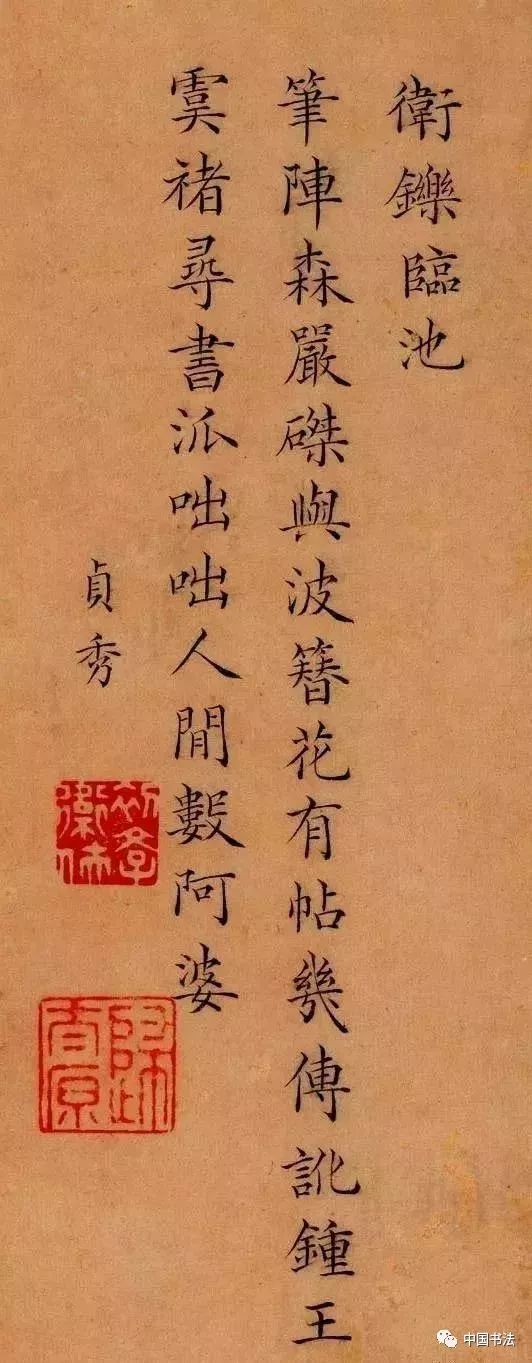 衛鑠臨池
筆陣森嚴磔與波簪花有帖幾傳訛鍾王
虞褚尋書派咄咄人閒數阿婆
貞秀
中国书法